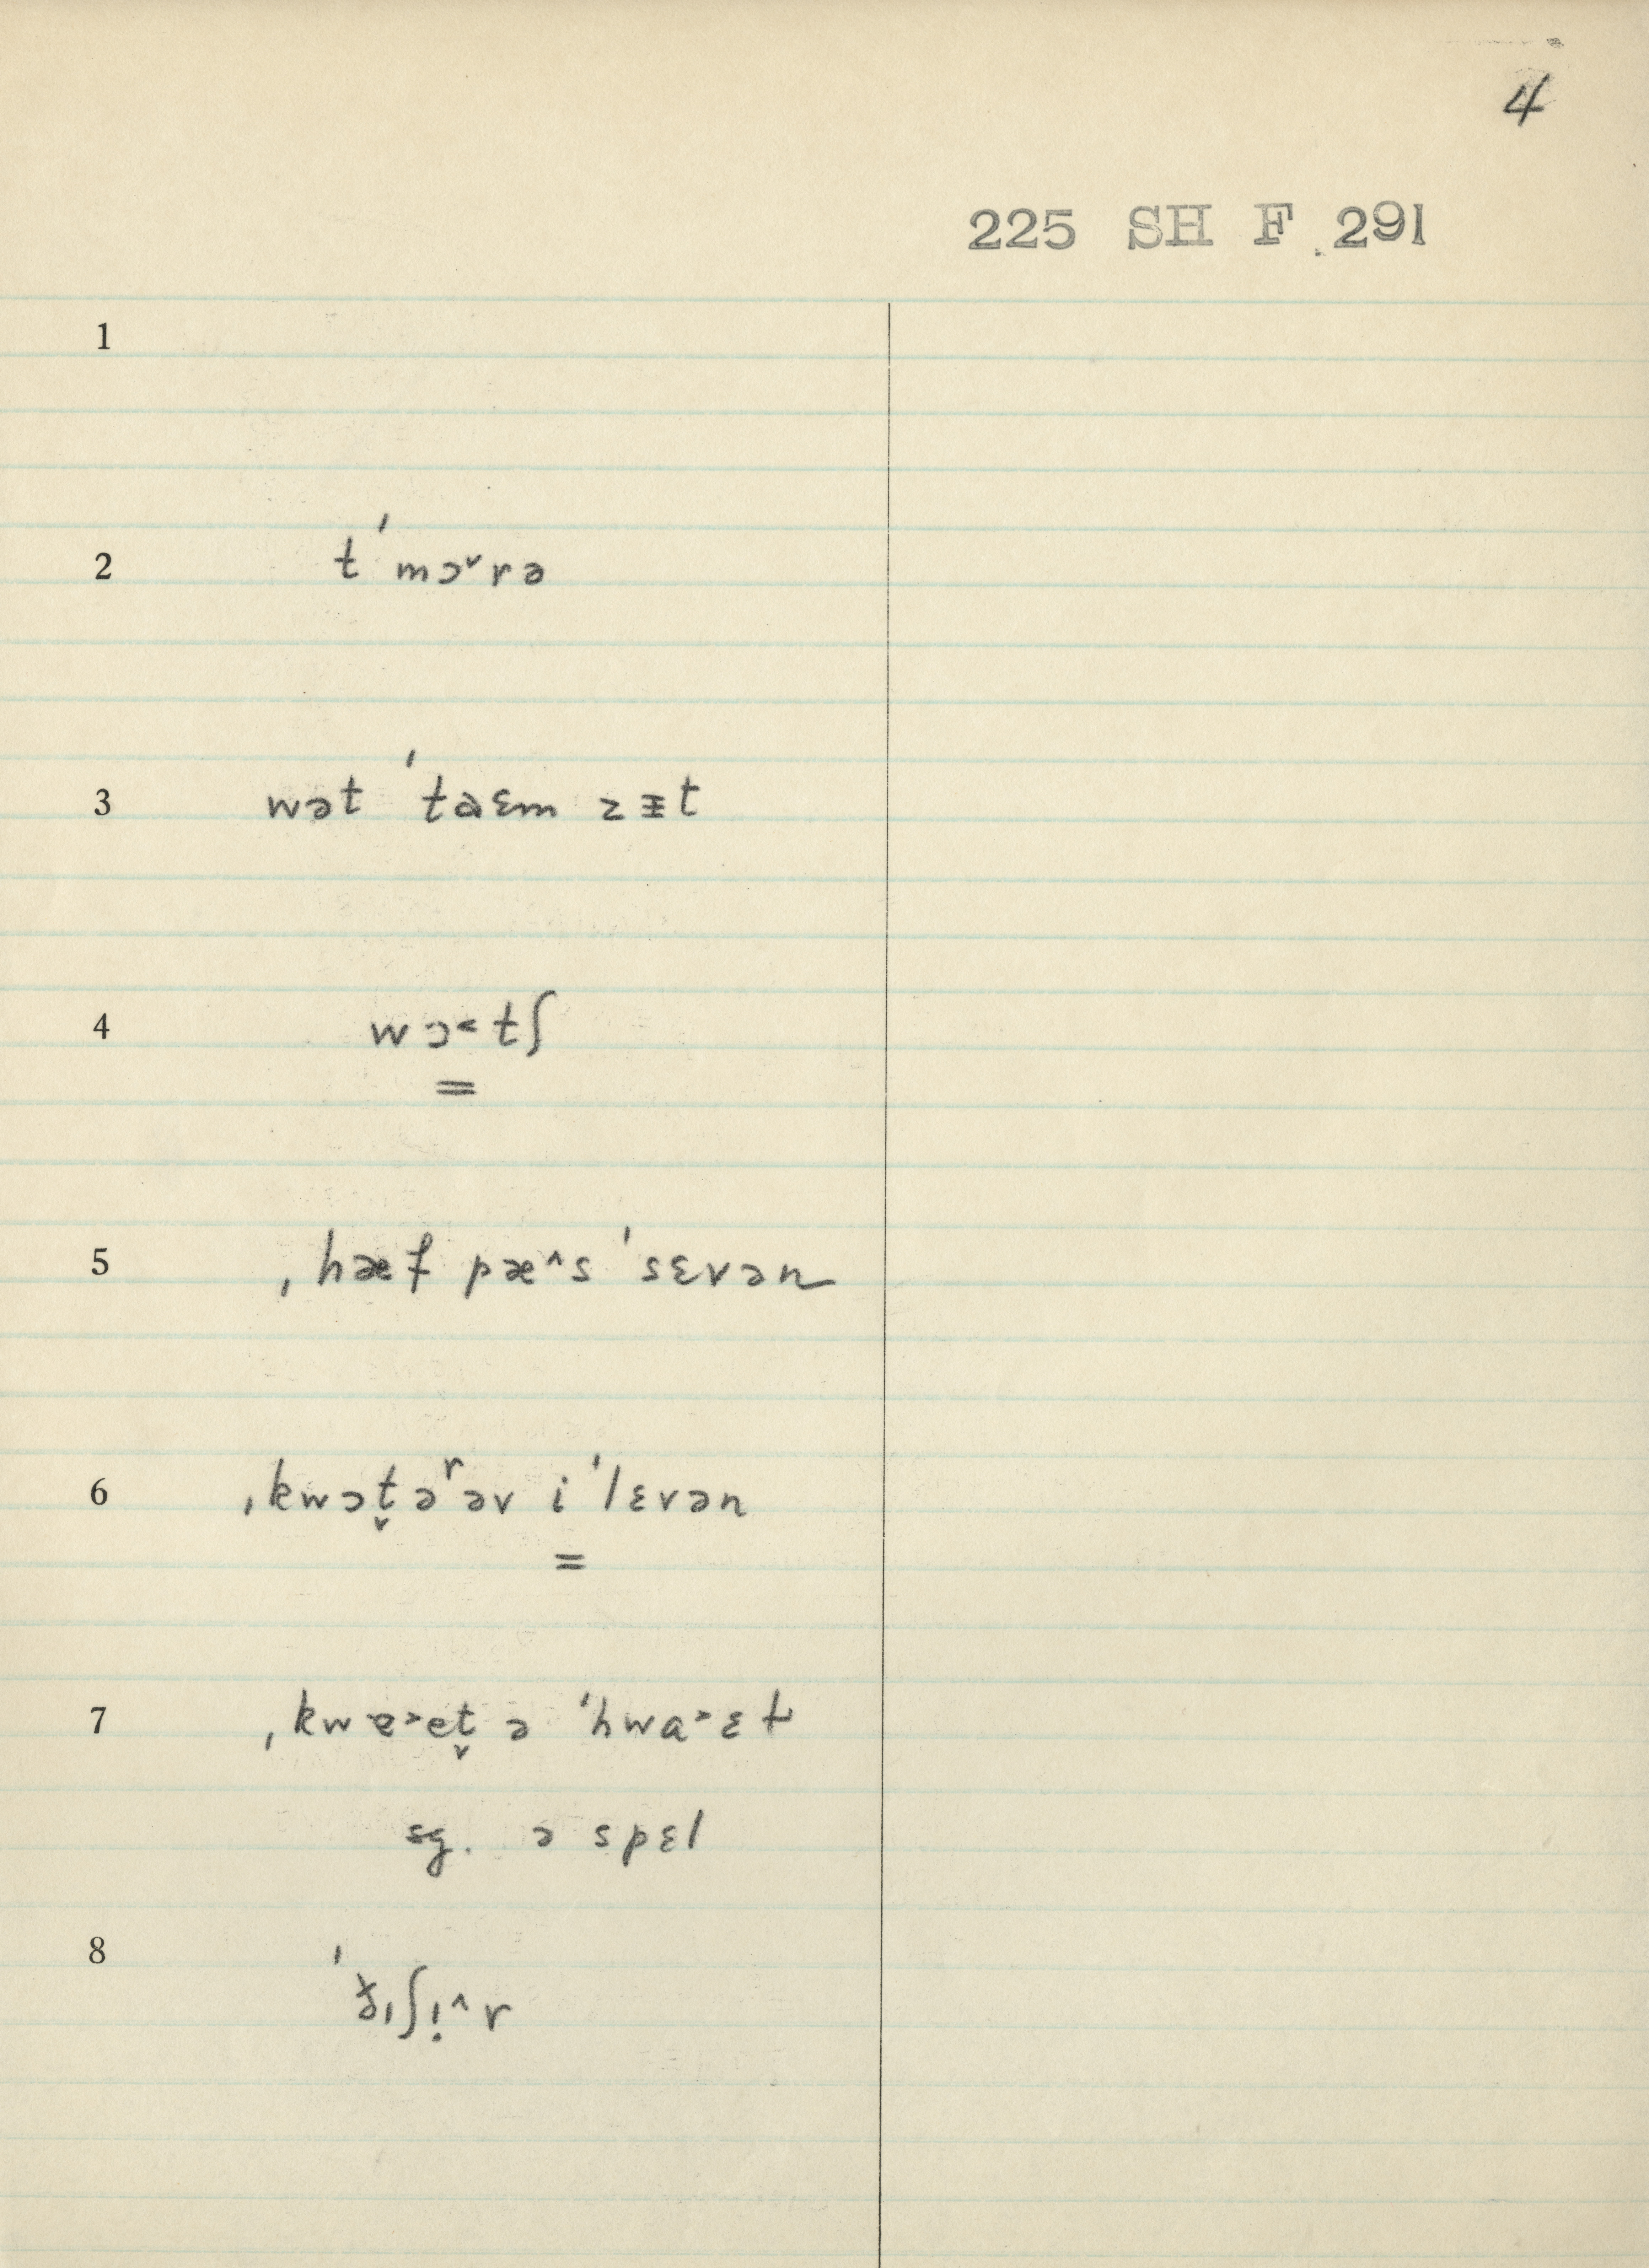 4
225 SH F 291
1
2 tˈmɔ˅rə
3 wət ˈtaɛm zɪt
4 wɔ˂tʃ
=
5 ˌhæf pæ˄s ˈsɛvən
6 ˌkwɔt̬əʳəv iˈlɛvən
=
7 ˌkwɐ˃et̬ ə ˈhwa˃ɛɫ
sg. ə spɛl
8